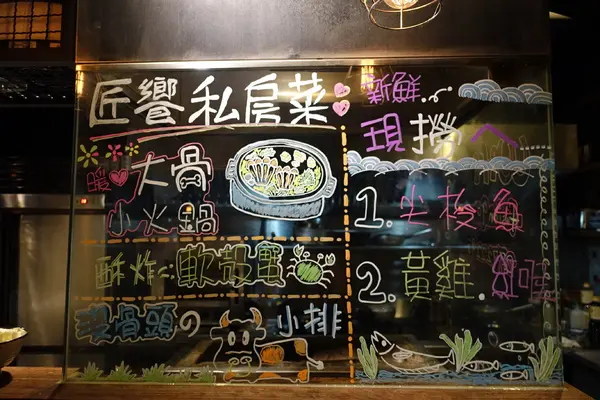 匠饗私房菜
暖
大骨
小火鍋
酥炸
軟殼蟹
の
小排
新鮮
現撈
1. 尖梭魚
2. 黃雞.